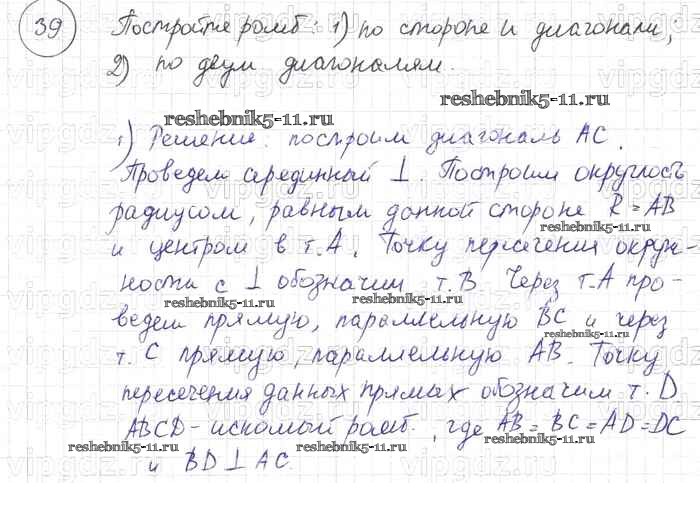 39 Постройте ромб: 1) по стороне и диагонали,
2) по двум диагоналям.
reshebnik5-11.ru
reshebnik5-11.ru
1) Решение: построим диагональ AC.
Проведем серединный ⊥. Построим окружность
радиусом, равным данной стороне R=AB
reshebnik5-11.ru
и центром в т.A. Точку пересечения окруж-
ности с ⊥ обозначим т.B. Через т.A про-
reshebnik5-11.ru reshebnik5-11.ru
ведем прямую, параллельную BC и через
reshebnik5-11.ru
т.C прямую, параллельную AB. Точку
пересечения данных прямых обозначим т.D.
ABCD - искомый ромб, где AB=BC=AD=DC
reshebnik5-11.ru reshebnik5-11.ru reshebnik5-11.ru
и BD⊥AC.